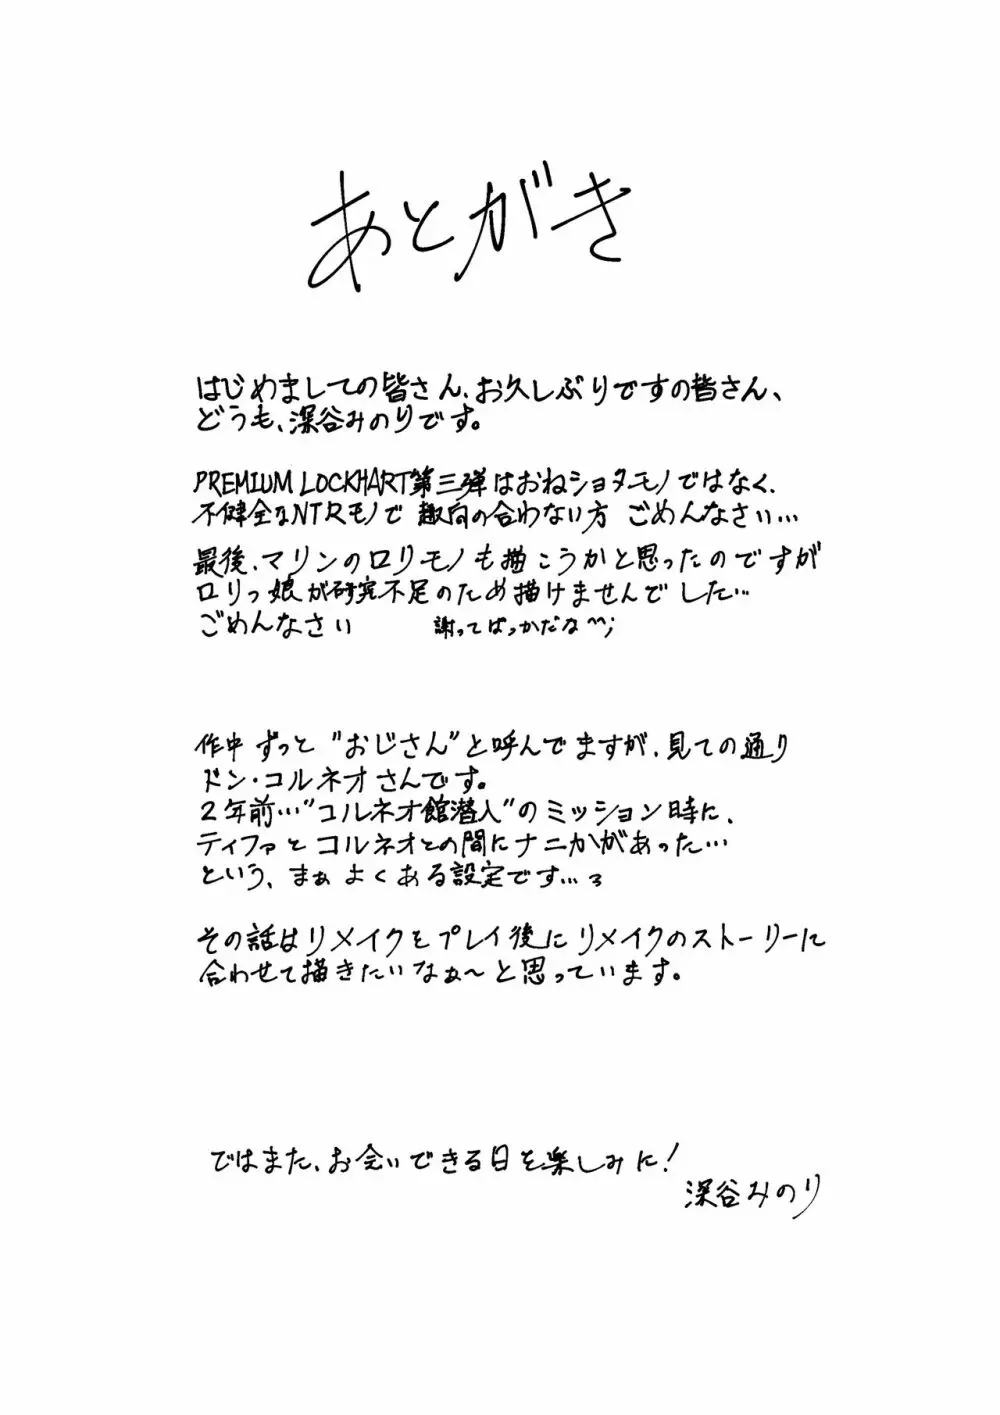 あとがき
はじめましての皆さん、お久しぶりですの皆さん、
どうも、深谷みのりです。
PREMIUM LOCKHART第三弾はおねショタモノではなく、
不健全なNTRモノで 趣向の合わない方 ごめんなさい…
最後、マリンのロリモノも描こうかと思ったのですが
ロリっ娘が研究不足のため描けませんでした…
ごめんなさい 謝ってばっかだな^^;
作中 ずっと "おじさん"と呼んでますが、見ての通り
ドン・コルネオさんです。
2年前…"コルネオ館潜入"のミッション時に、
ティファと コルネオとの間にナニかがあった…
という、まぁ よくある設定です…
その話はリメイクをプレイ後にリメイクのストーリーに
合わせて描きたいなぁ〜と思っています。
ではまた、お会いできる日を楽しみに！
深谷みのり